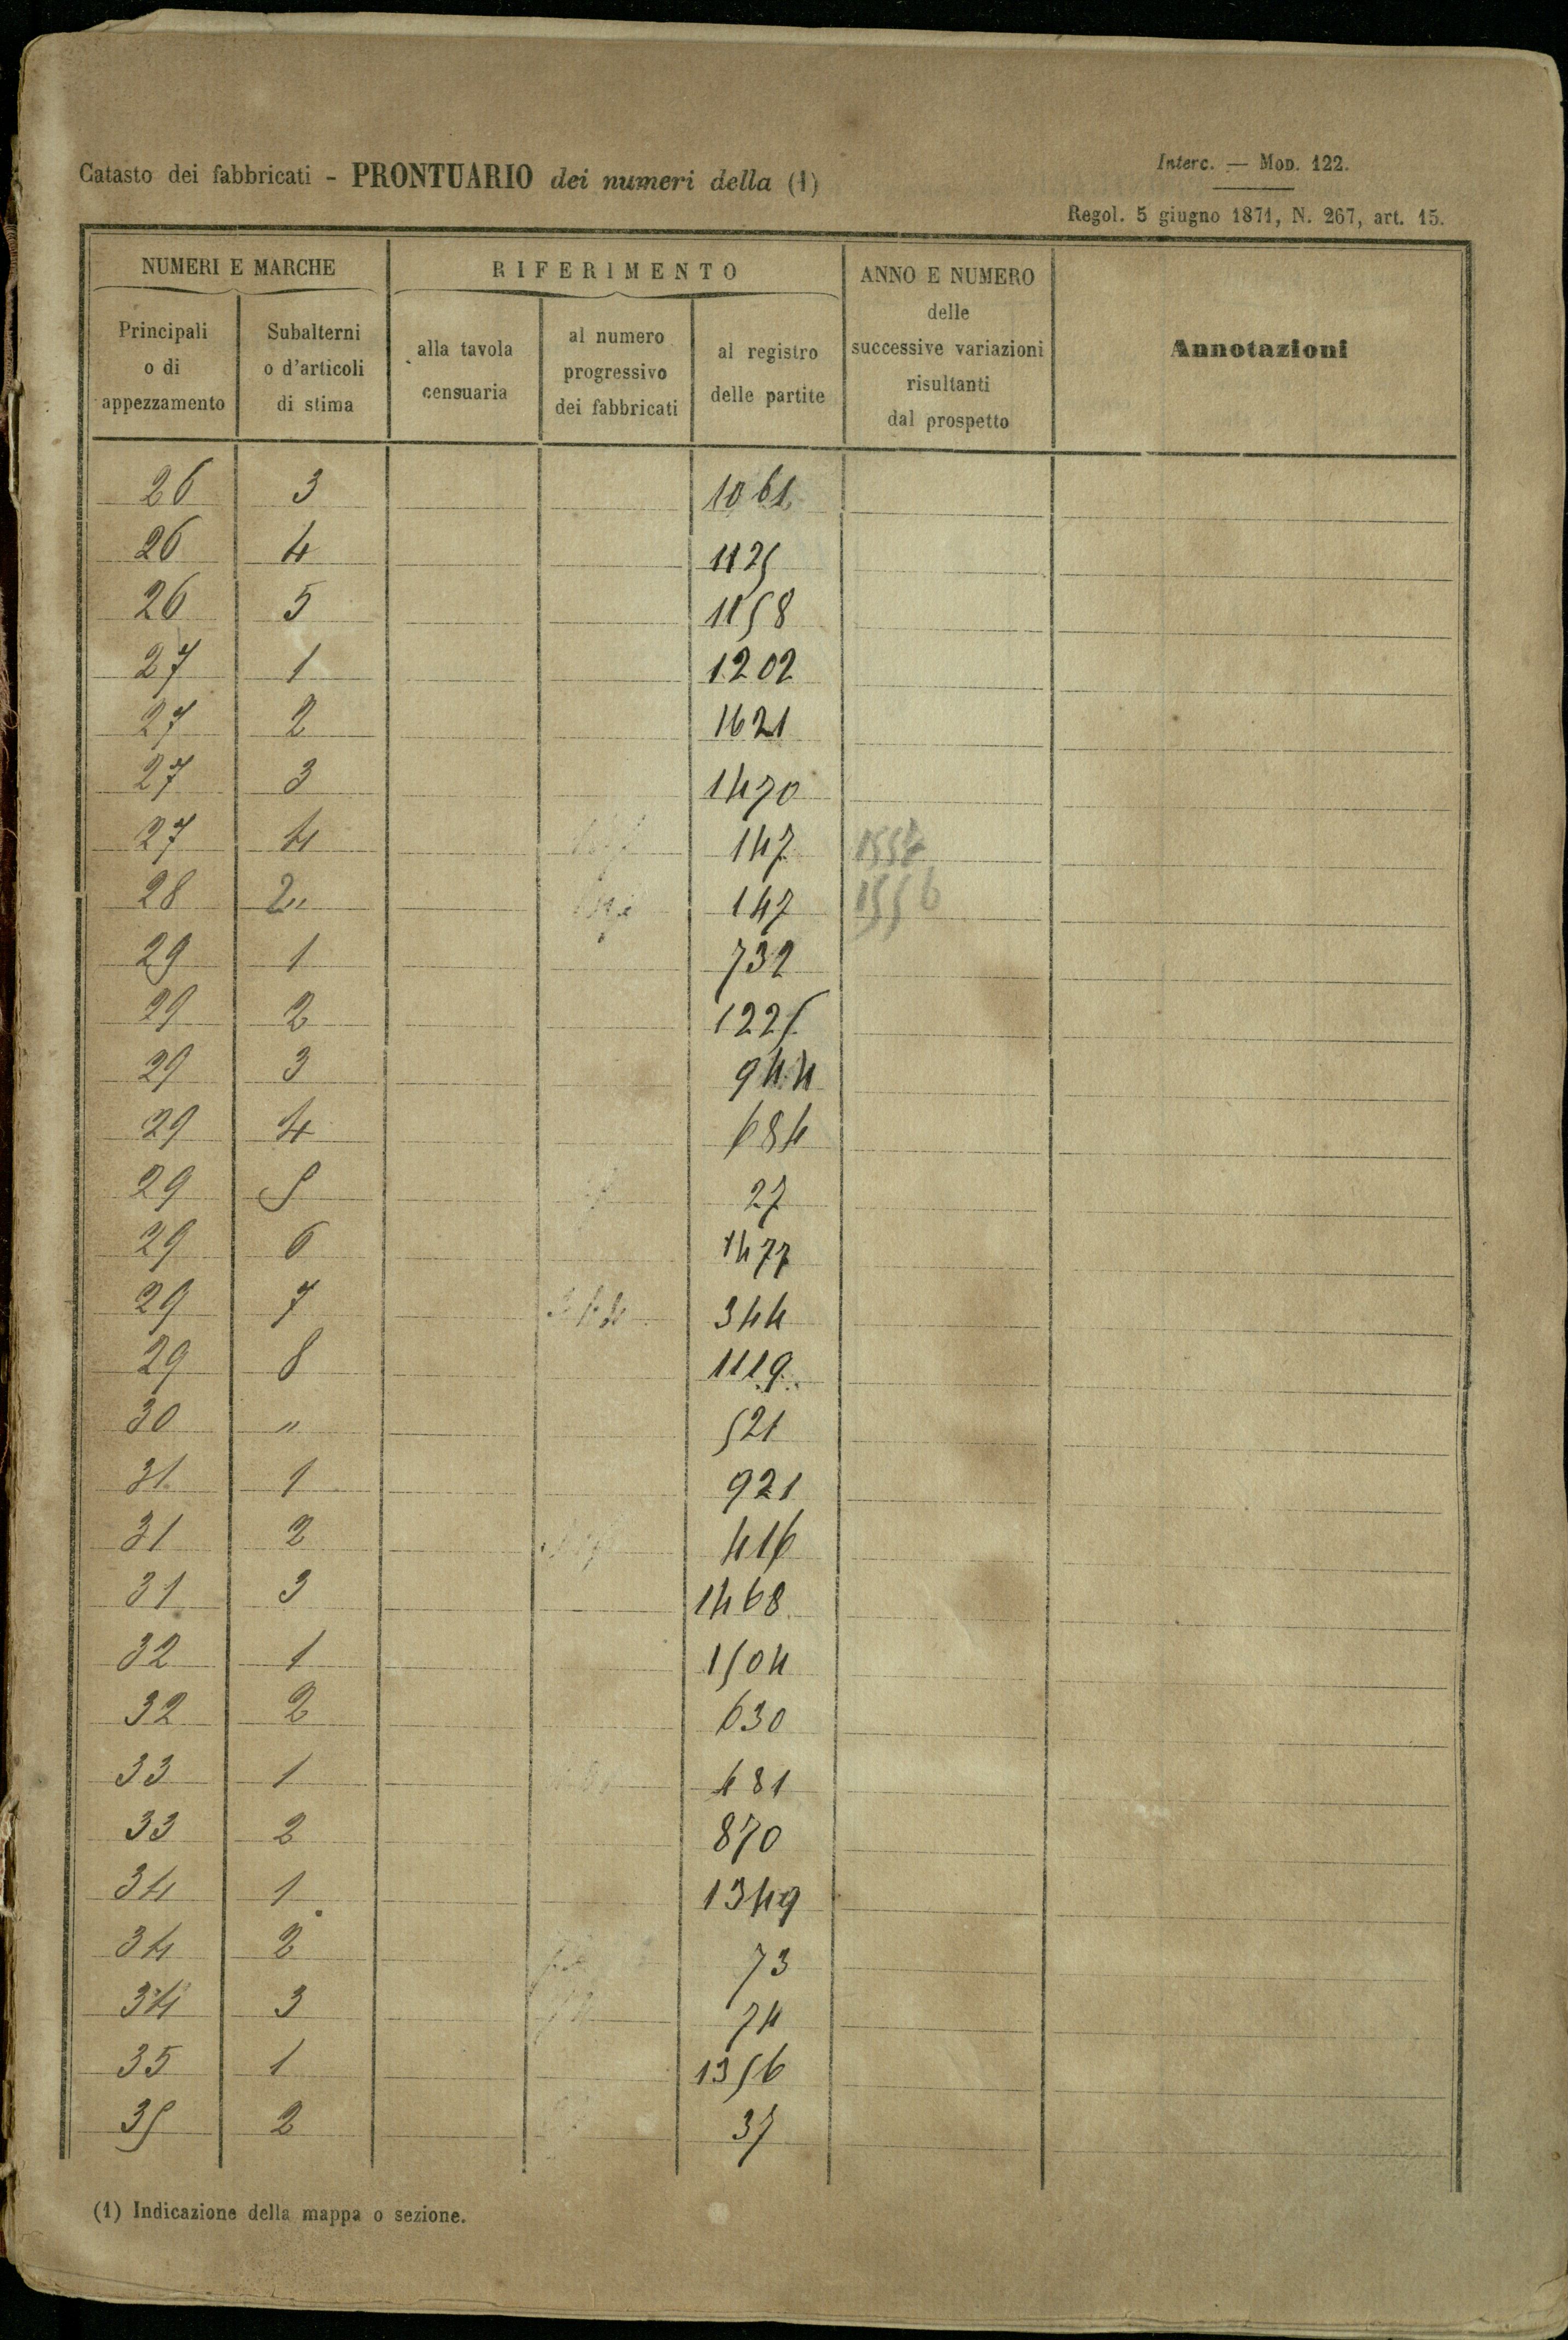 Catasto dei fabbricati - PRONTUARIO dei numeri della (1)
Interc. — Mod. 122.
Regol. 5 giugno 1871, N. 267, art. 15.
NUMERI E MARCHE
RIFERIMENTO
ANNO E NUMERO
delle
successive variazioni
risultanti
dal prospetto
Annotazioni
Principali
o di
appezzamento
Subalterni
o d'articoli
di stima
alla tavola
censuaria
al numero
progressivo
dei fabbricati
al registro
delle partite
26 3 1061
26 4 1125
26 5 1158
27 1 1202
27 2 1621
27 3 1470
27 4 147
28 2" 147 1556
29 1 732
29 2 1225
29 3 944
29 4 684
29 5 27
29 6 1477
29 7 344 344
29 8 1119
30 " 521
31 1 921
31 2 416
31 3 1468
32 1 1504
32 2 630
33 1 481
33 2 870
34 1 1349
34 2 73
34 3 74
35 1 1356
35 2 37
(1) Indicazione della mappa o sezione.